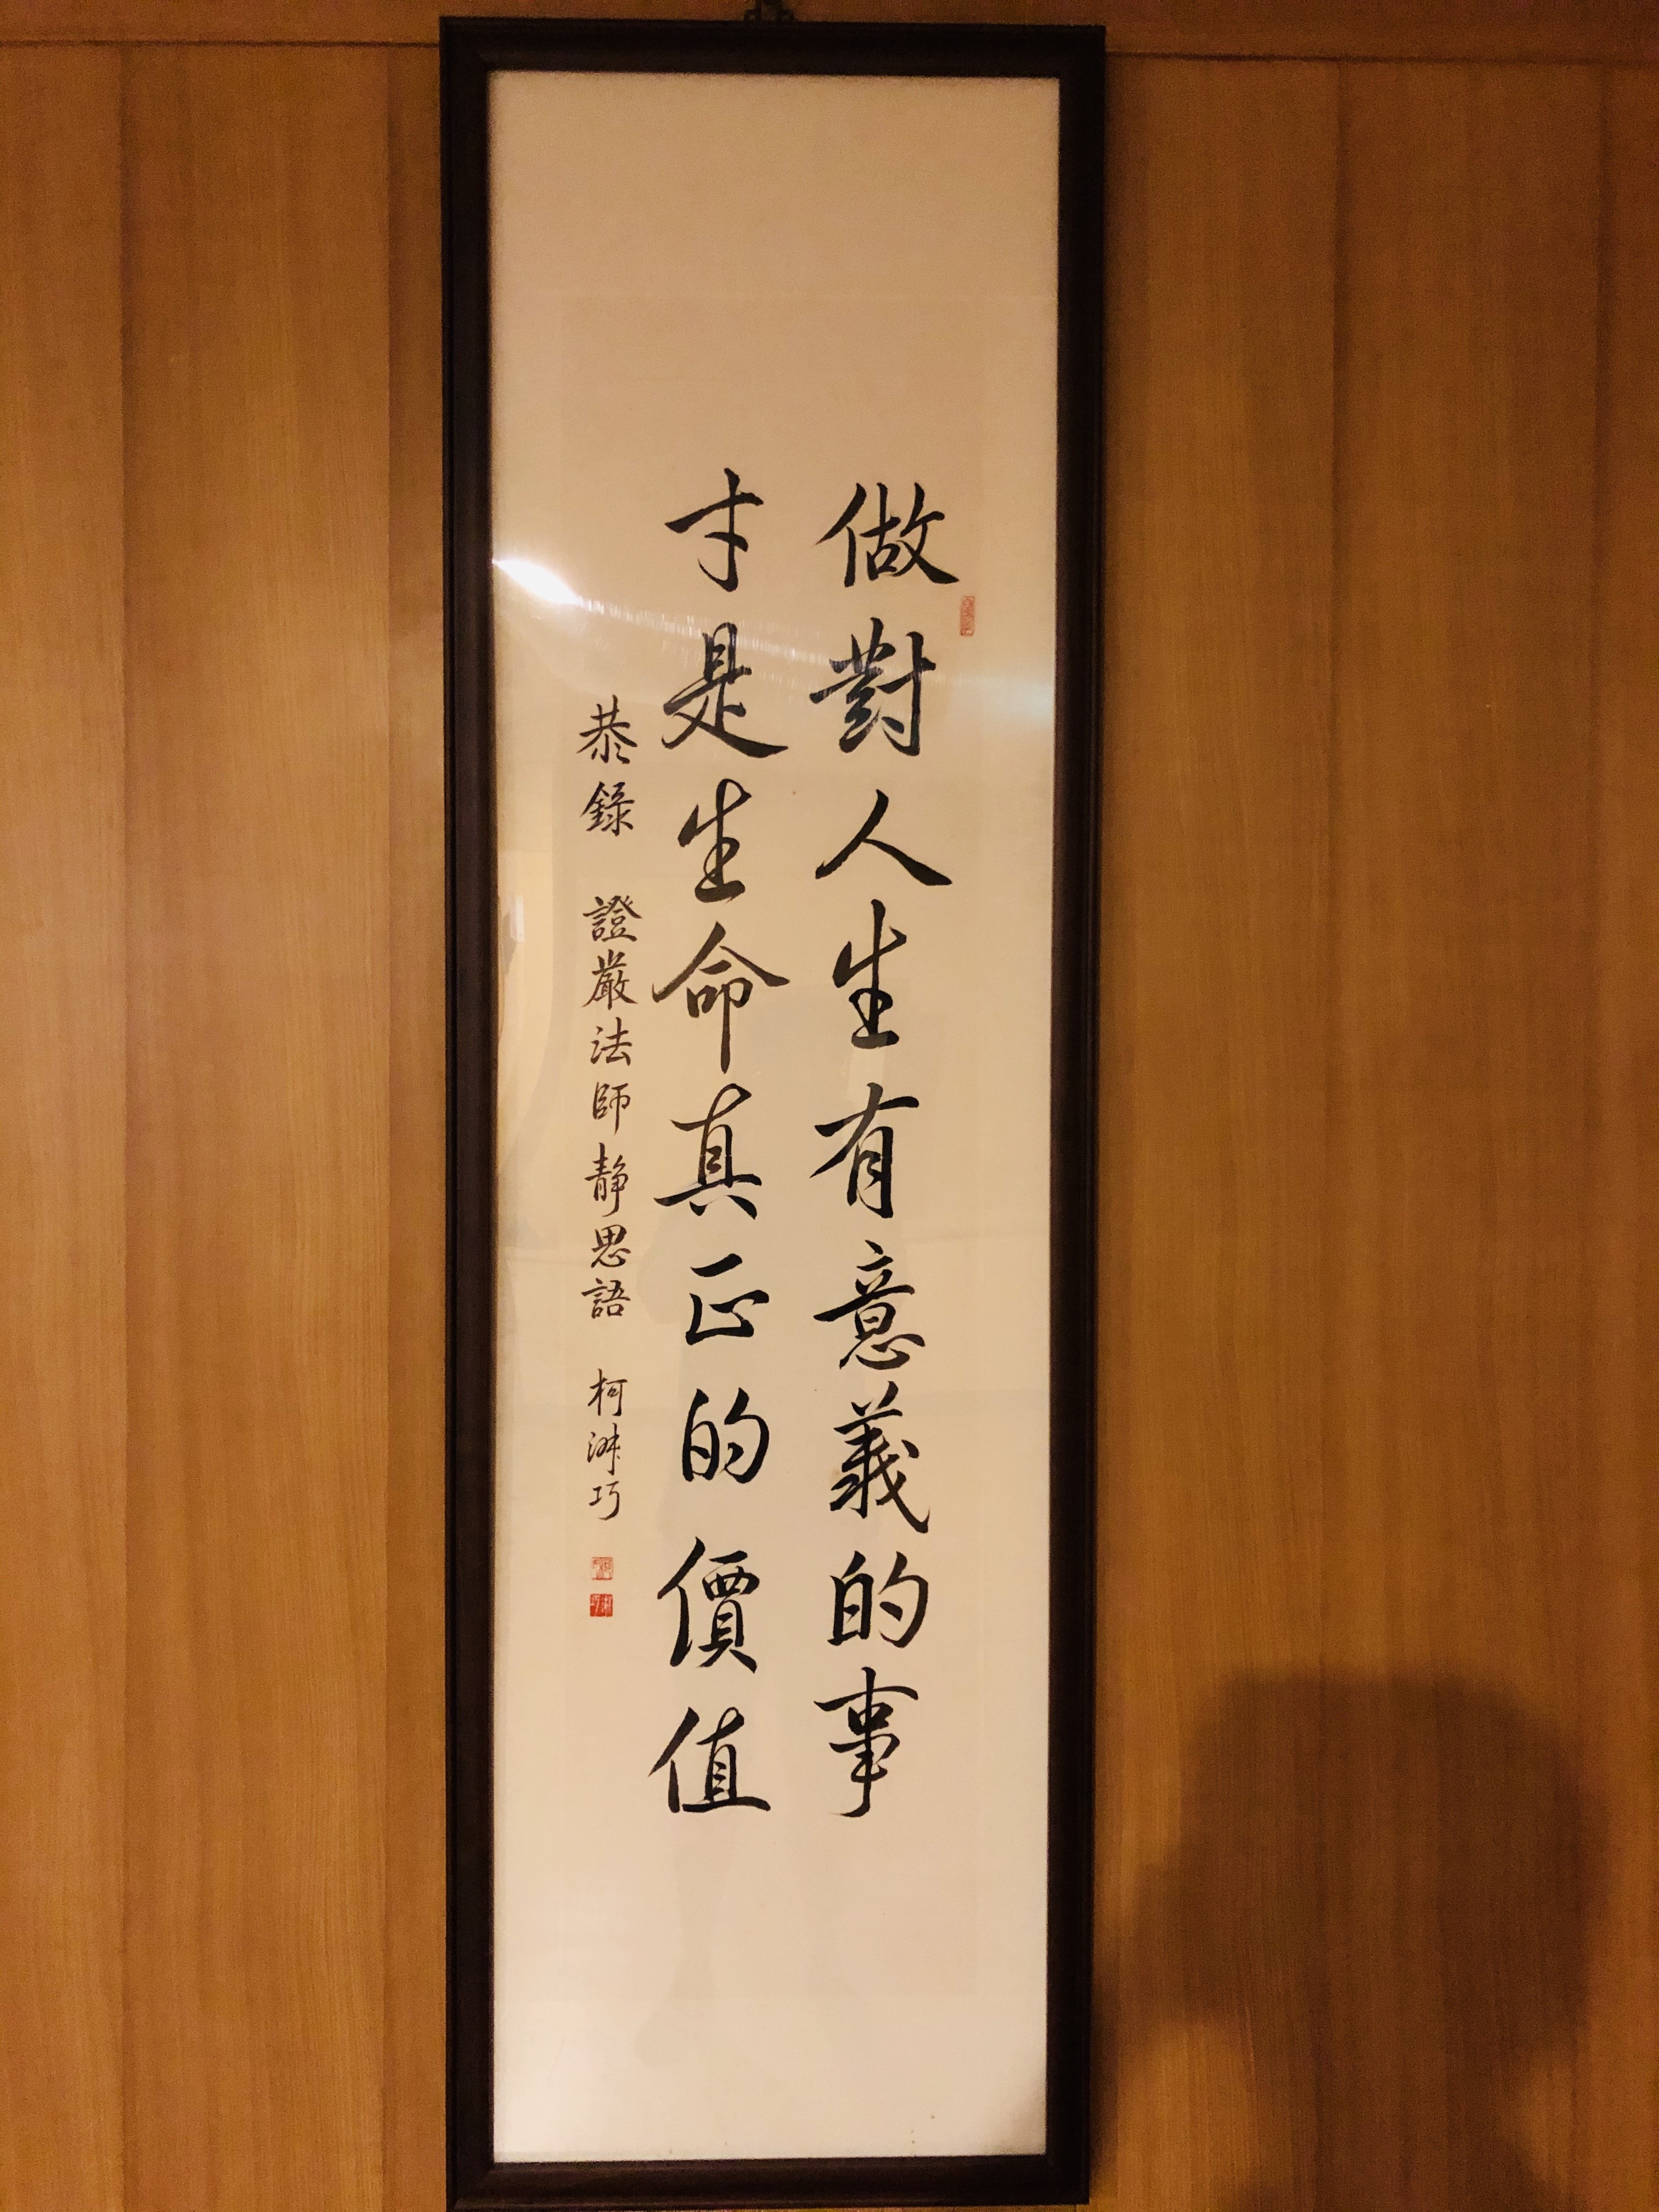 做對人生有意義的事
才是生命真正的價值
恭錄 證嚴法師靜思語 柯淋巧